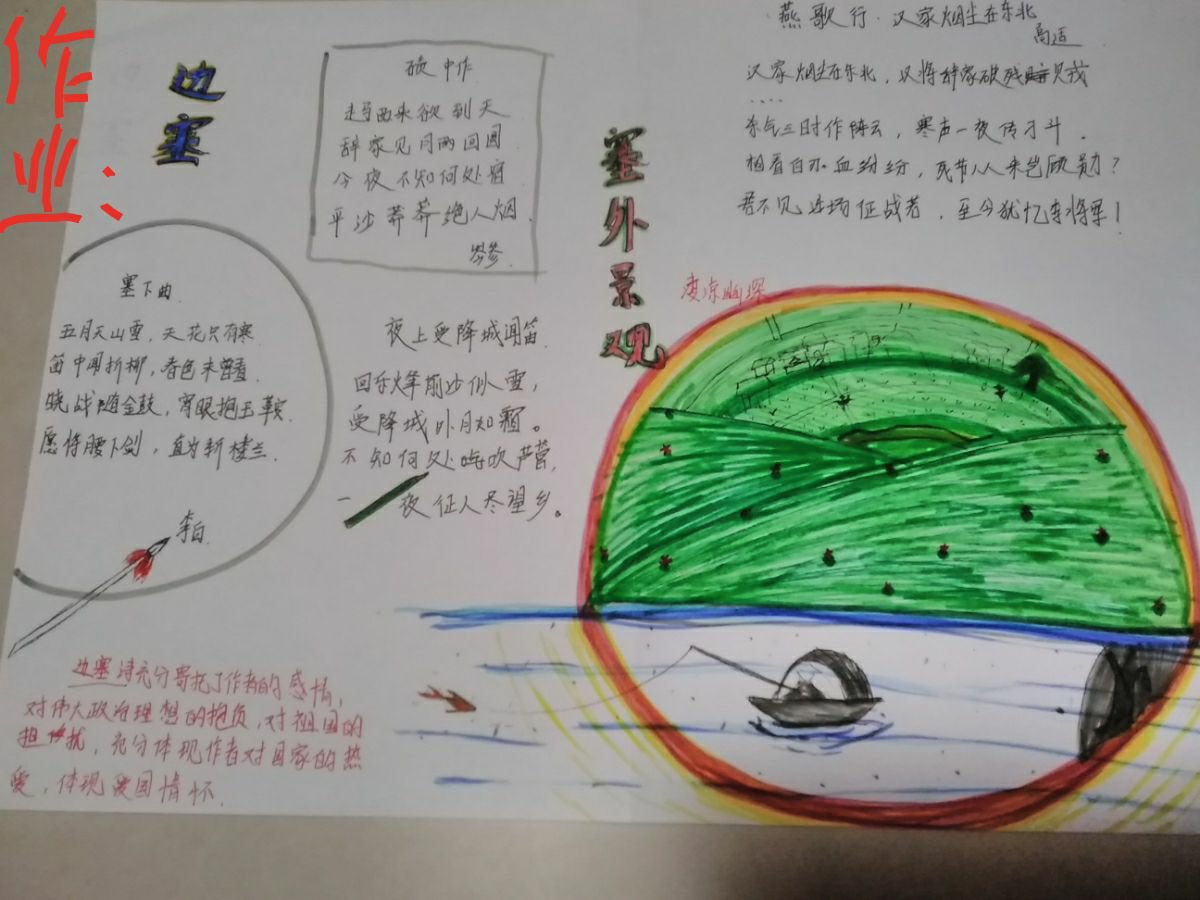 作业：
边塞
碛中作
走马西来欲到天
辞家见月两回圆
今夜不知何处宿
平沙莽莽绝人烟.
岑参.
塞下曲.
五月天山雪，天花只有寒.
笛中闻折柳，春色未曾看.
晓战随金鼓，宵眠抱玉鞍.
愿将腰下剑，直为斩楼兰.
李白.
夜上受降城闻笛.
回乐烽前沙似雪，
受降城外月如霜。
不知何处吹芦管，
一夜征人尽望乡。
边塞诗充分寄托了作者的感情，
对伟大政治理想的抱负，对祖国的
担忧，充分体现作者对国家的热
爱，体现爱国情怀.
塞外景观
燕歌行·汉家烟尘在东北
高适
汉家烟尘在东北，汉将辞家破残贼
....
杀气三时作阵云，寒声一夜传刁斗.
相看白刃血纷纷，死节从来岂顾勋？
君不见沙场征战者，至今犹忆李将军！
凄凉幽深